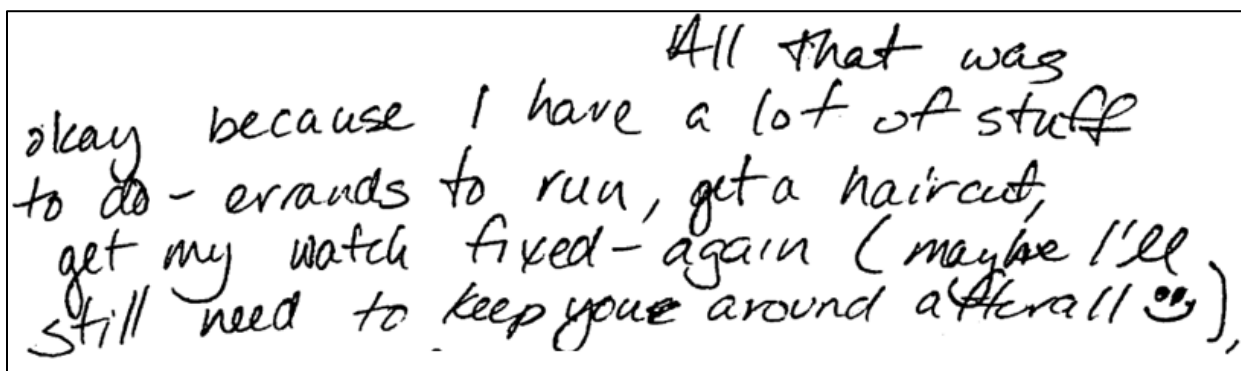 All that was
okay because I have a lot of stuff
to do - errands to run, get a haircut,
get my watch fixed - again (maybe I'll
still need to keep your around afterall 😊),